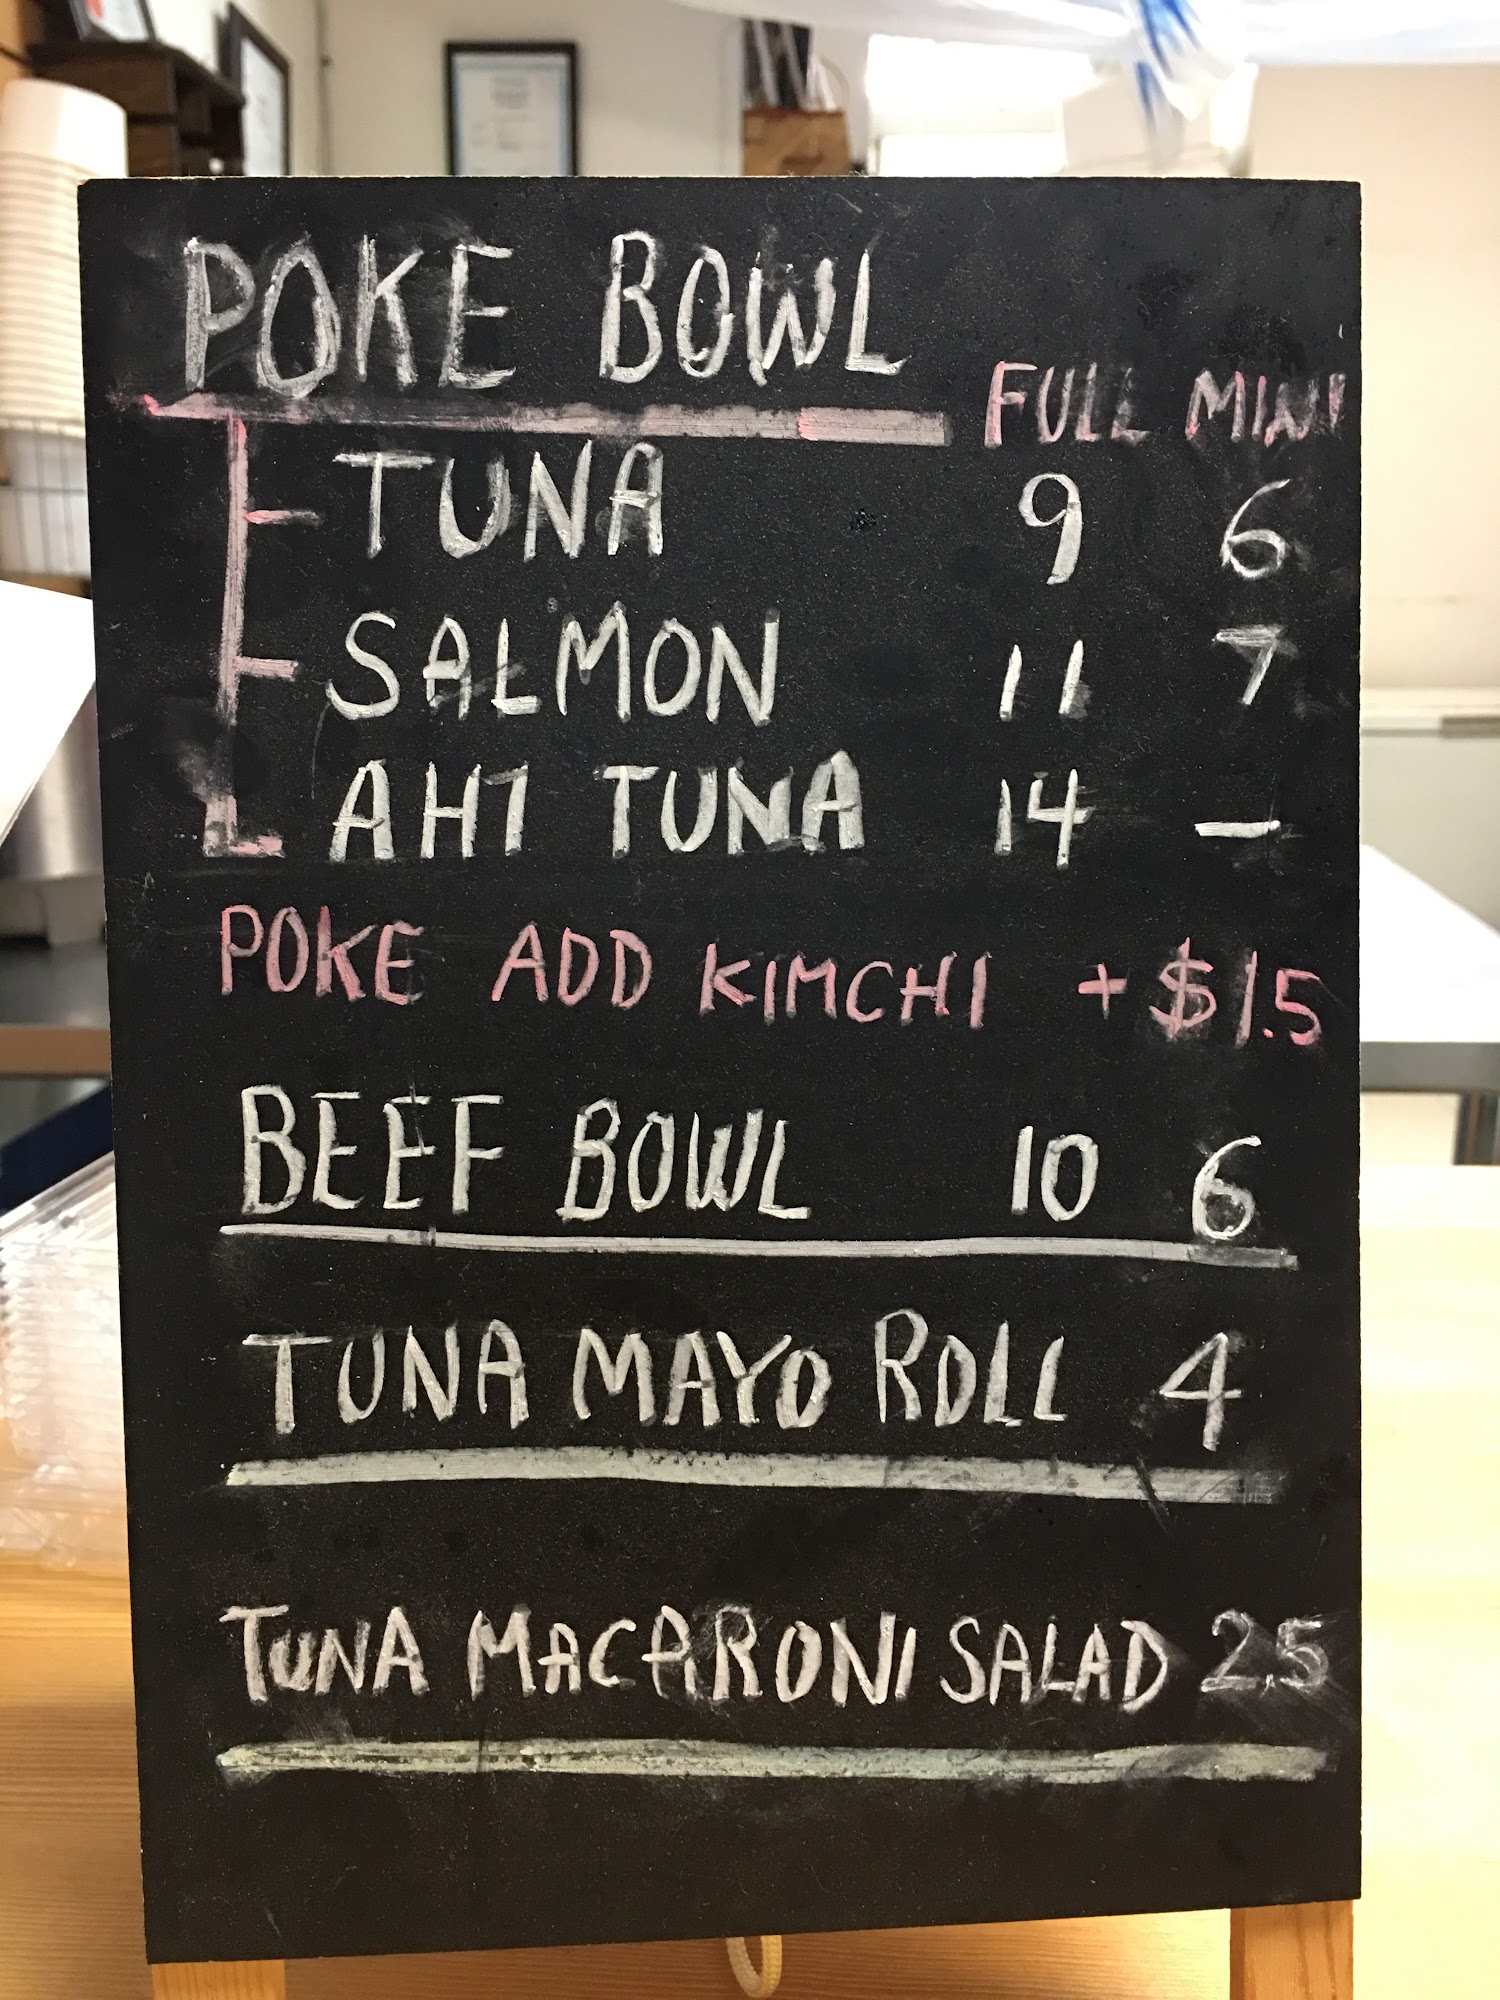 POKE BOWL
FULL MINI
TUNA 9 6
SALMON 11 7
AHI TUNA 14 —
POKE ADD KIMCHI + $1.5
BEEF BOWL 10 6
TUNA MAYO ROLL 4
TUNA MACARONI SALAD 2.5